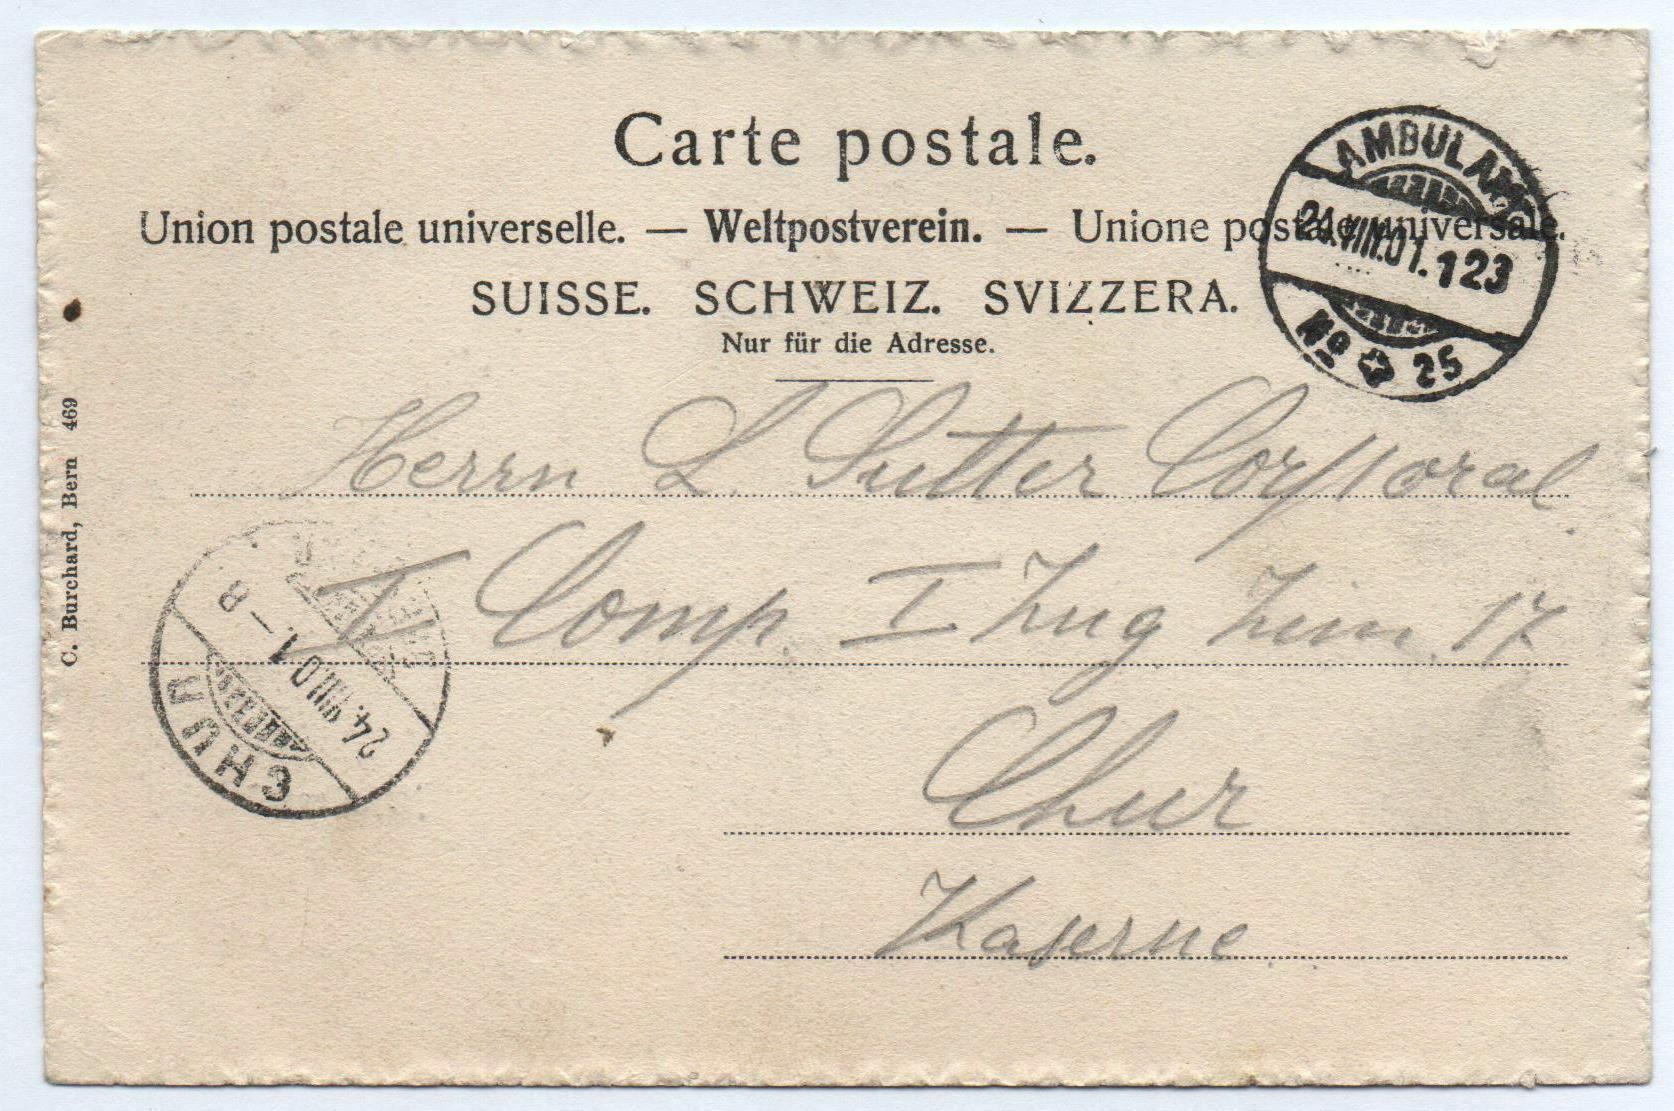 Carte postale.
Union postale universelle. — Weltpostverein. — Unione postale universale.
SUISSE. SCHWEIZ. SVIZZERA.
Nur für die Adresse.
AMBULANT
24.VIII.01. 123
No 25
Herrn L. Sutter Corporal
I Comp. I Zug Zim. 17
Chur
Kaserne.
24.VIII.01–8
CHUR
C. Burchard, Bern 469